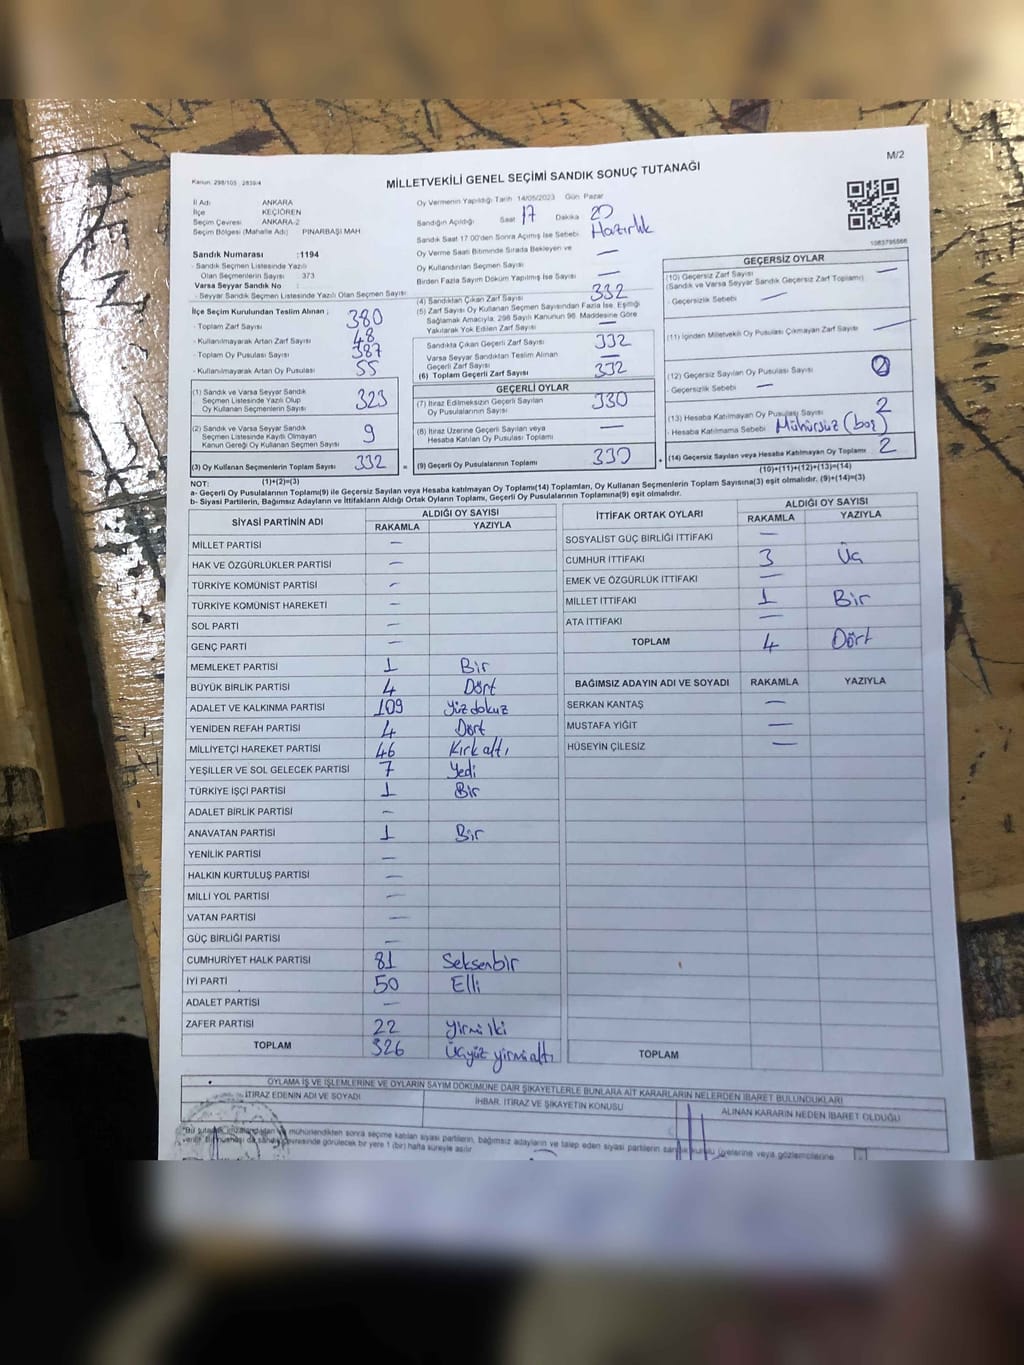 M/2
Kanun: 298/105 , 2839/4
MİLLETVEKİLİ GENEL SEÇİMİ SANDIK SONUÇ TUTANAĞI
İl Adı : ANKARA
İlçe : KEÇİÖREN
Seçim Çevresi : ANKARA-2
Seçim Bölgesi (Mahalle Adı) : PINARBAŞI MAH.
Sandık Numarası :1194
- Sandık Seçmen Listesinde Yazılı
Olan Seçmenlerin Sayısı : 373
Varsa Seyyar Sandık No :
- Seyyar Sandık Seçmen Listesinde Yazılı Olan Seçmen Sayısı
İlçe Seçim Kurulundan Teslim Alınan ;
- Toplam Zarf Sayısı 380
- Kullanılmayarak Artan Zarf Sayısı 48
- Toplam Oy Pusulası Sayısı 387
- Kullanılmayarak Artan Oy Pusulası 55
(1) Sandık ve Varsa Seyyar Sandık
Seçmen Listesinde Yazılı Olup
Oy Kullanan Seçmenlerin Sayısı 323
(2) Sandık ve Varsa Seyyar Sandık
Seçmen Listesinde Kayıtlı Olmayan
Kanun Gereği Oy Kullanan Seçmen Sayısı 9
(3) Oy Kullanan Seçmenlerin Toplam Sayısı 332
Oy Vermenin Yapıldığı Tarih 14/05/2023 Gün Pazar
Sandığın Açıldığı Saat 17 Dakika 20
Sandık Saat 17:00'den Sonra Açılmış İse Sebebi Hazırlık
Oy Verme Saati Bitiminde Sırada Bekleyen ve —
Oy Kullandırılan Seçmen Sayısı
Birden Fazla Sayım Döküm Yapılmış İse Sayısı —
(4) Sandıktan Çıkan Zarf Sayısı 332
(5) Zarf Sayısı Oy Kullanan Seçmen Sayısından Fazla İse, Eşitliği
Sağlamak Amacıyla, 298 Sayılı Kanunun 98. Maddesine Göre
Yakılarak Yok Edilen Zarf Sayısı —
Sandıkta Çıkan Geçerli Zarf Sayısı 332
Varsa Seyyar Sandıktan Teslim Alınan
Geçerli Zarf Sayısı —
(6) Toplam Geçerli Zarf Sayısı 332
GEÇERLİ OYLAR
(7) İtiraz Edilmeksizin Geçerli Sayılan
Oy Pusulalarının Sayısı 330
(8) İtiraz Üzerine Geçerli Sayılan veya
Hesaba Katılan Oy Pusulası Toplamı —
= (9) Geçerli Oy Pusulalarının Toplamı 330 +
1083795566
GEÇERSİZ OYLAR
(10) Geçersiz Zarf Sayısı —
(Sandık ve Varsa Seyyar Sandık Geçersiz Zarf Toplamı)
- Geçersizlik Sebebi : —
(11) İçinden Milletvekili Oy Pusulası Çıkmayan Zarf Sayısı —
(12) Geçersiz Sayılan Oy Pusulası Sayısı
- Geçersizlik Sebebi : —
(13) Hesaba Katılmayan Oy Pusulası Sayısı 2
- Hesaba Katılmama Sebebi : Mühürsüz (boş)
(14) Geçersiz Sayılan veya Hesaba Katılmayan Oy Toplamı 2
(1)+(2)=(3)
(10)+(11)+(12)+(13)=(14)
NOT:
a- Geçerli Oy Pusulalarının Toplamı(9) ile Geçersiz Sayılan veya Hesaba Katılmayan Oy Toplamı(14) Toplamları, Oy Kullanan Seçmenlerin Toplam Sayısına(3) eşit olmalıdır. (9)+(14)=(3)
b- Siyasi Partilerin, Bağımsız Adayların ve İttifakların Aldığı Ortak Oyların Toplamı, Geçerli Oy Pusulalarının Toplamına(9) eşit olmalıdır.
SİYASİ PARTİNİN ADI ALDIĞI OY SAYISI
RAKAMLA YAZIYLA
MİLLET PARTİSİ —
HAK VE ÖZGÜRLÜKLER PARTİSİ —
TÜRKİYE KOMÜNİST PARTİSİ —
TÜRKİYE KOMÜNİST HAREKETİ —
SOL PARTİ —
GENÇ PARTİ —
MEMLEKET PARTİSİ 1 Bir
BÜYÜK BİRLİK PARTİSİ 4 Dört
ADALET VE KALKINMA PARTİSİ 109 Yüzdokuz
YENİDEN REFAH PARTİSİ 4 Dört
MİLLİYETÇİ HAREKET PARTİSİ 46 Kırkaltı
YEŞİLLER VE SOL GELECEK PARTİSİ 7 Yedi
TÜRKİYE İŞÇİ PARTİSİ 1 Bir
ADALET BİRLİK PARTİSİ —
ANAVATAN PARTİSİ 1 Bir
YENİLİK PARTİSİ —
HALKIN KURTULUŞ PARTİSİ —
MİLLİ YOL PARTİSİ —
VATAN PARTİSİ —
GÜÇ BİRLİĞİ PARTİSİ —
CUMHURİYET HALK PARTİSİ 81 Seksenbir
İYİ PARTİ 50 Elli
ADALET PARTİSİ —
ZAFER PARTİSİ 22 Yirmi İki
TOPLAM 326 Üçyüz yirmialtı
İTTİFAK ORTAK OYLARI ALDIĞI OY SAYISI
RAKAMLA YAZIYLA
SOSYALİST GÜÇ BİRLİĞİ İTTİFAKI —
CUMHUR İTTİFAKI 3 Üç
EMEK VE ÖZGÜRLÜK İTTİFAKI —
MİLLET İTTİFAKI 1 Bir
ATA İTTİFAKI —
TOPLAM 4 Dört
BAĞIMSIZ ADAYIN ADI VE SOYADI RAKAMLA YAZIYLA
SERKAN KANTAŞ —
MUSTAFA YİĞİT —
HÜSEYİN ÇİLESİZ —
TOPLAM
OYLAMA İŞ VE İŞLEMLERİNE VE OYLARIN SAYIM DÖKÜMÜNE DAİR ŞİKAYETLERLE BUNLARA AİT KARARLARIN NELERDEN İBARET BULUNDUKLARI
İTİRAZ EDENİN ADI VE SOYADI İHBAR, İTİRAZ VE ŞİKAYETİN KONUSU ALINAN KARARIN NEDEN İBARET OLDUĞU
mühürlendikten sonra seçime katılan siyasi partilerin, bağımsız adayların ve talep eden siyasi partilerin sandık kurulu üyelerine veya gözlemcilerine
çevresinde görülecek bir yere 1 (bir) hafta süreyle asılır.